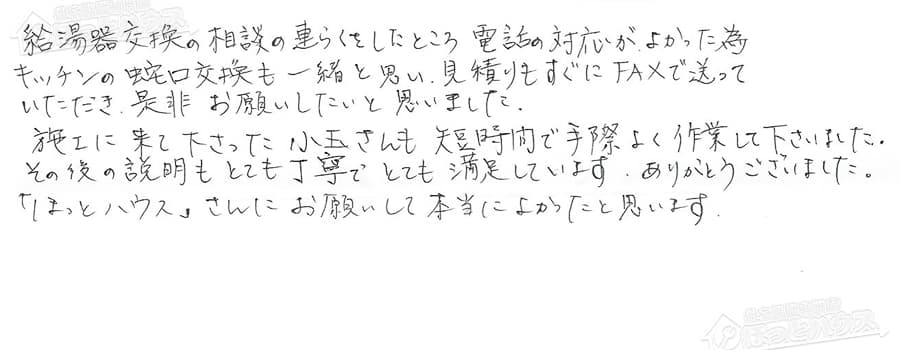 給湯器交換の相談の連らくをしたところ 電話の対応が よかった為
キッチンの蛇口交換も一緒と思い、見積りもすぐにFAXで送って
いただき、是非お願いしたいと思いました.
施工に来て下さった小玉さんも短時間で手際よく作業して下さいました.
その後の説明もとても丁寧でとても満足しています. ありがとうございました。
「ほっとハウス」さんにお願いして本当によかったと思います.
ほっとハウス